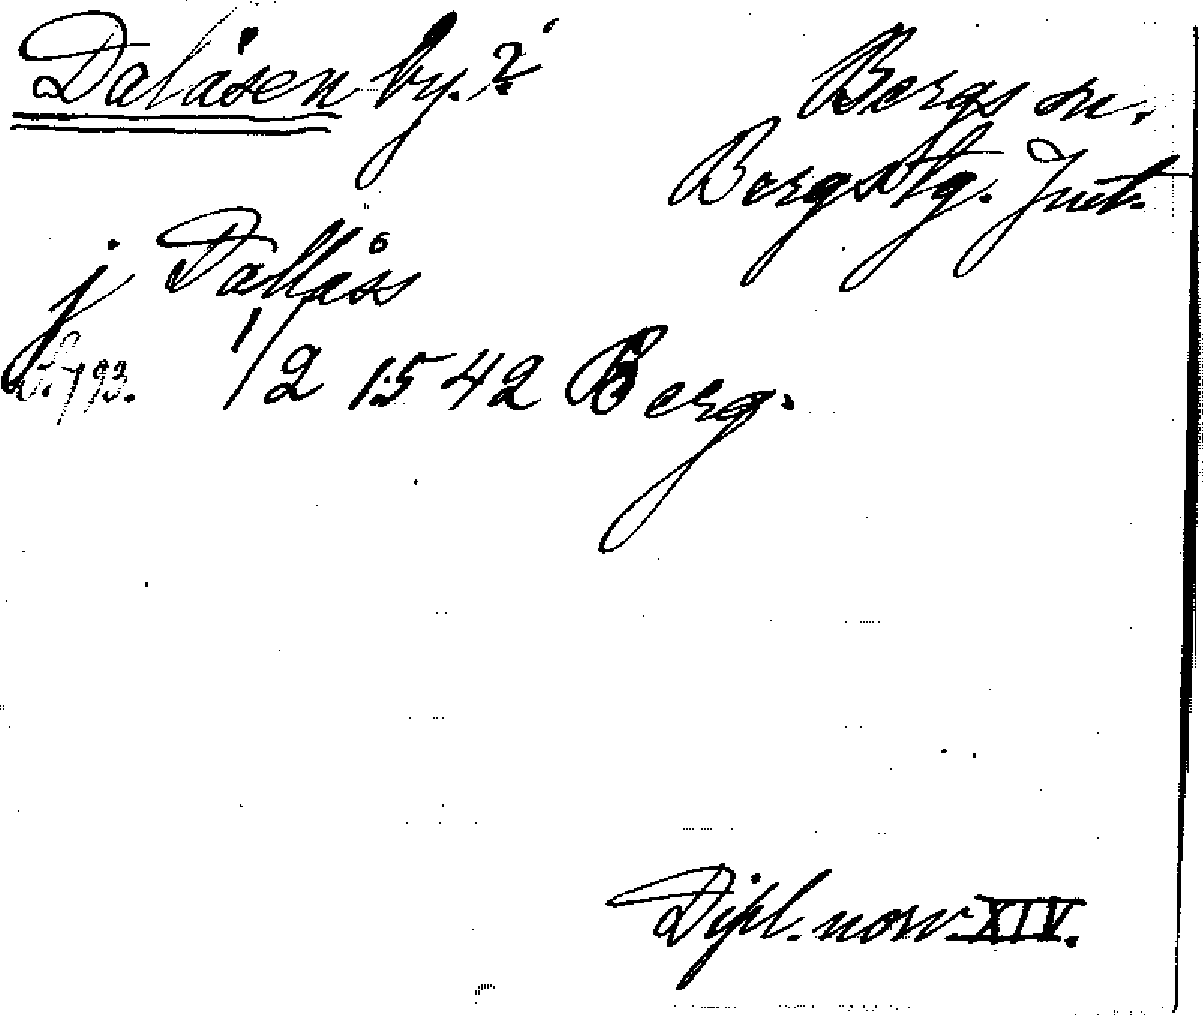 Dalåsen by.?
Bergs sn.
Bergs tg. Jmt.
j Dallåss
s. 793. 1/2 1542 Berg.
Dipl. norv. XIV.